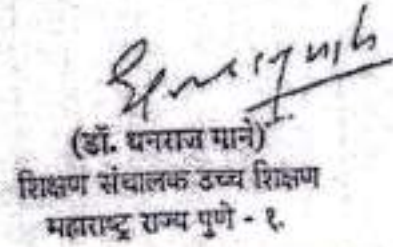 (डॉ. धनराज माने)
शिक्षण संचालक उच्च शिक्षण
महाराष्ट्र राज्य पुणे - १.